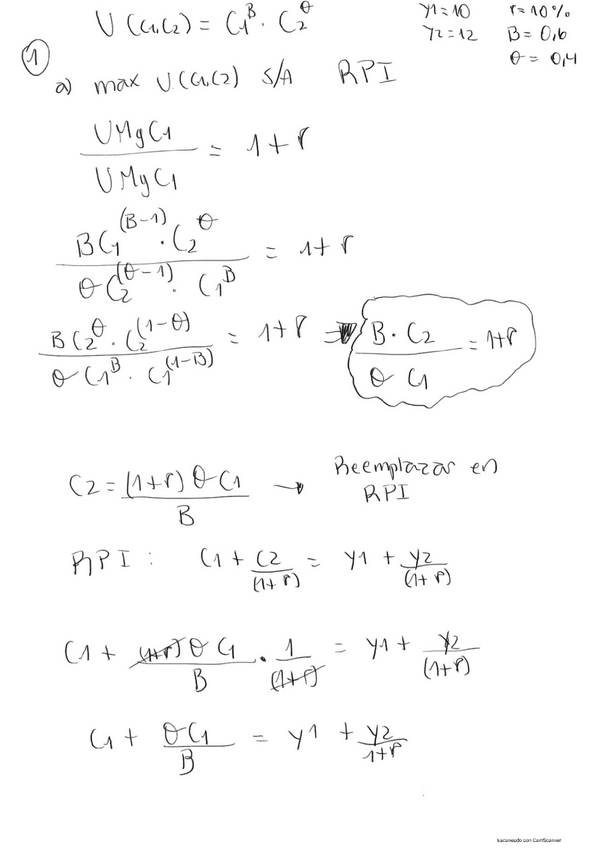 U(C1,C2) = C1^B · C2^θ
Y1=10 r=10%
Y2=12 B=0,6
θ=0,4
①
a) max U(C1,C2) S/A RPI
UMgC1 / UMgC1 = 1+r
BC1^(B-1) · C2^θ / θC2^(θ-1) · C1^B = 1+r
BC2^θ · C2^(1-θ) / θC1^B · C1^(1-B) = 1+r ⇒ B·C2 / θ C1 = 1+r
C2 = (1+r) θ C1 / B → Reemplazar en RPI
RPI: C1 + C2/(1+r) = Y1 + Y2/(1+r)
C1 + (1+r) θ C1 / B · 1/(1+r) = Y1 + Y2/(1+r)
C1 + θC1/B = Y1 + Y2/1+r
Escaneado con CamScanner